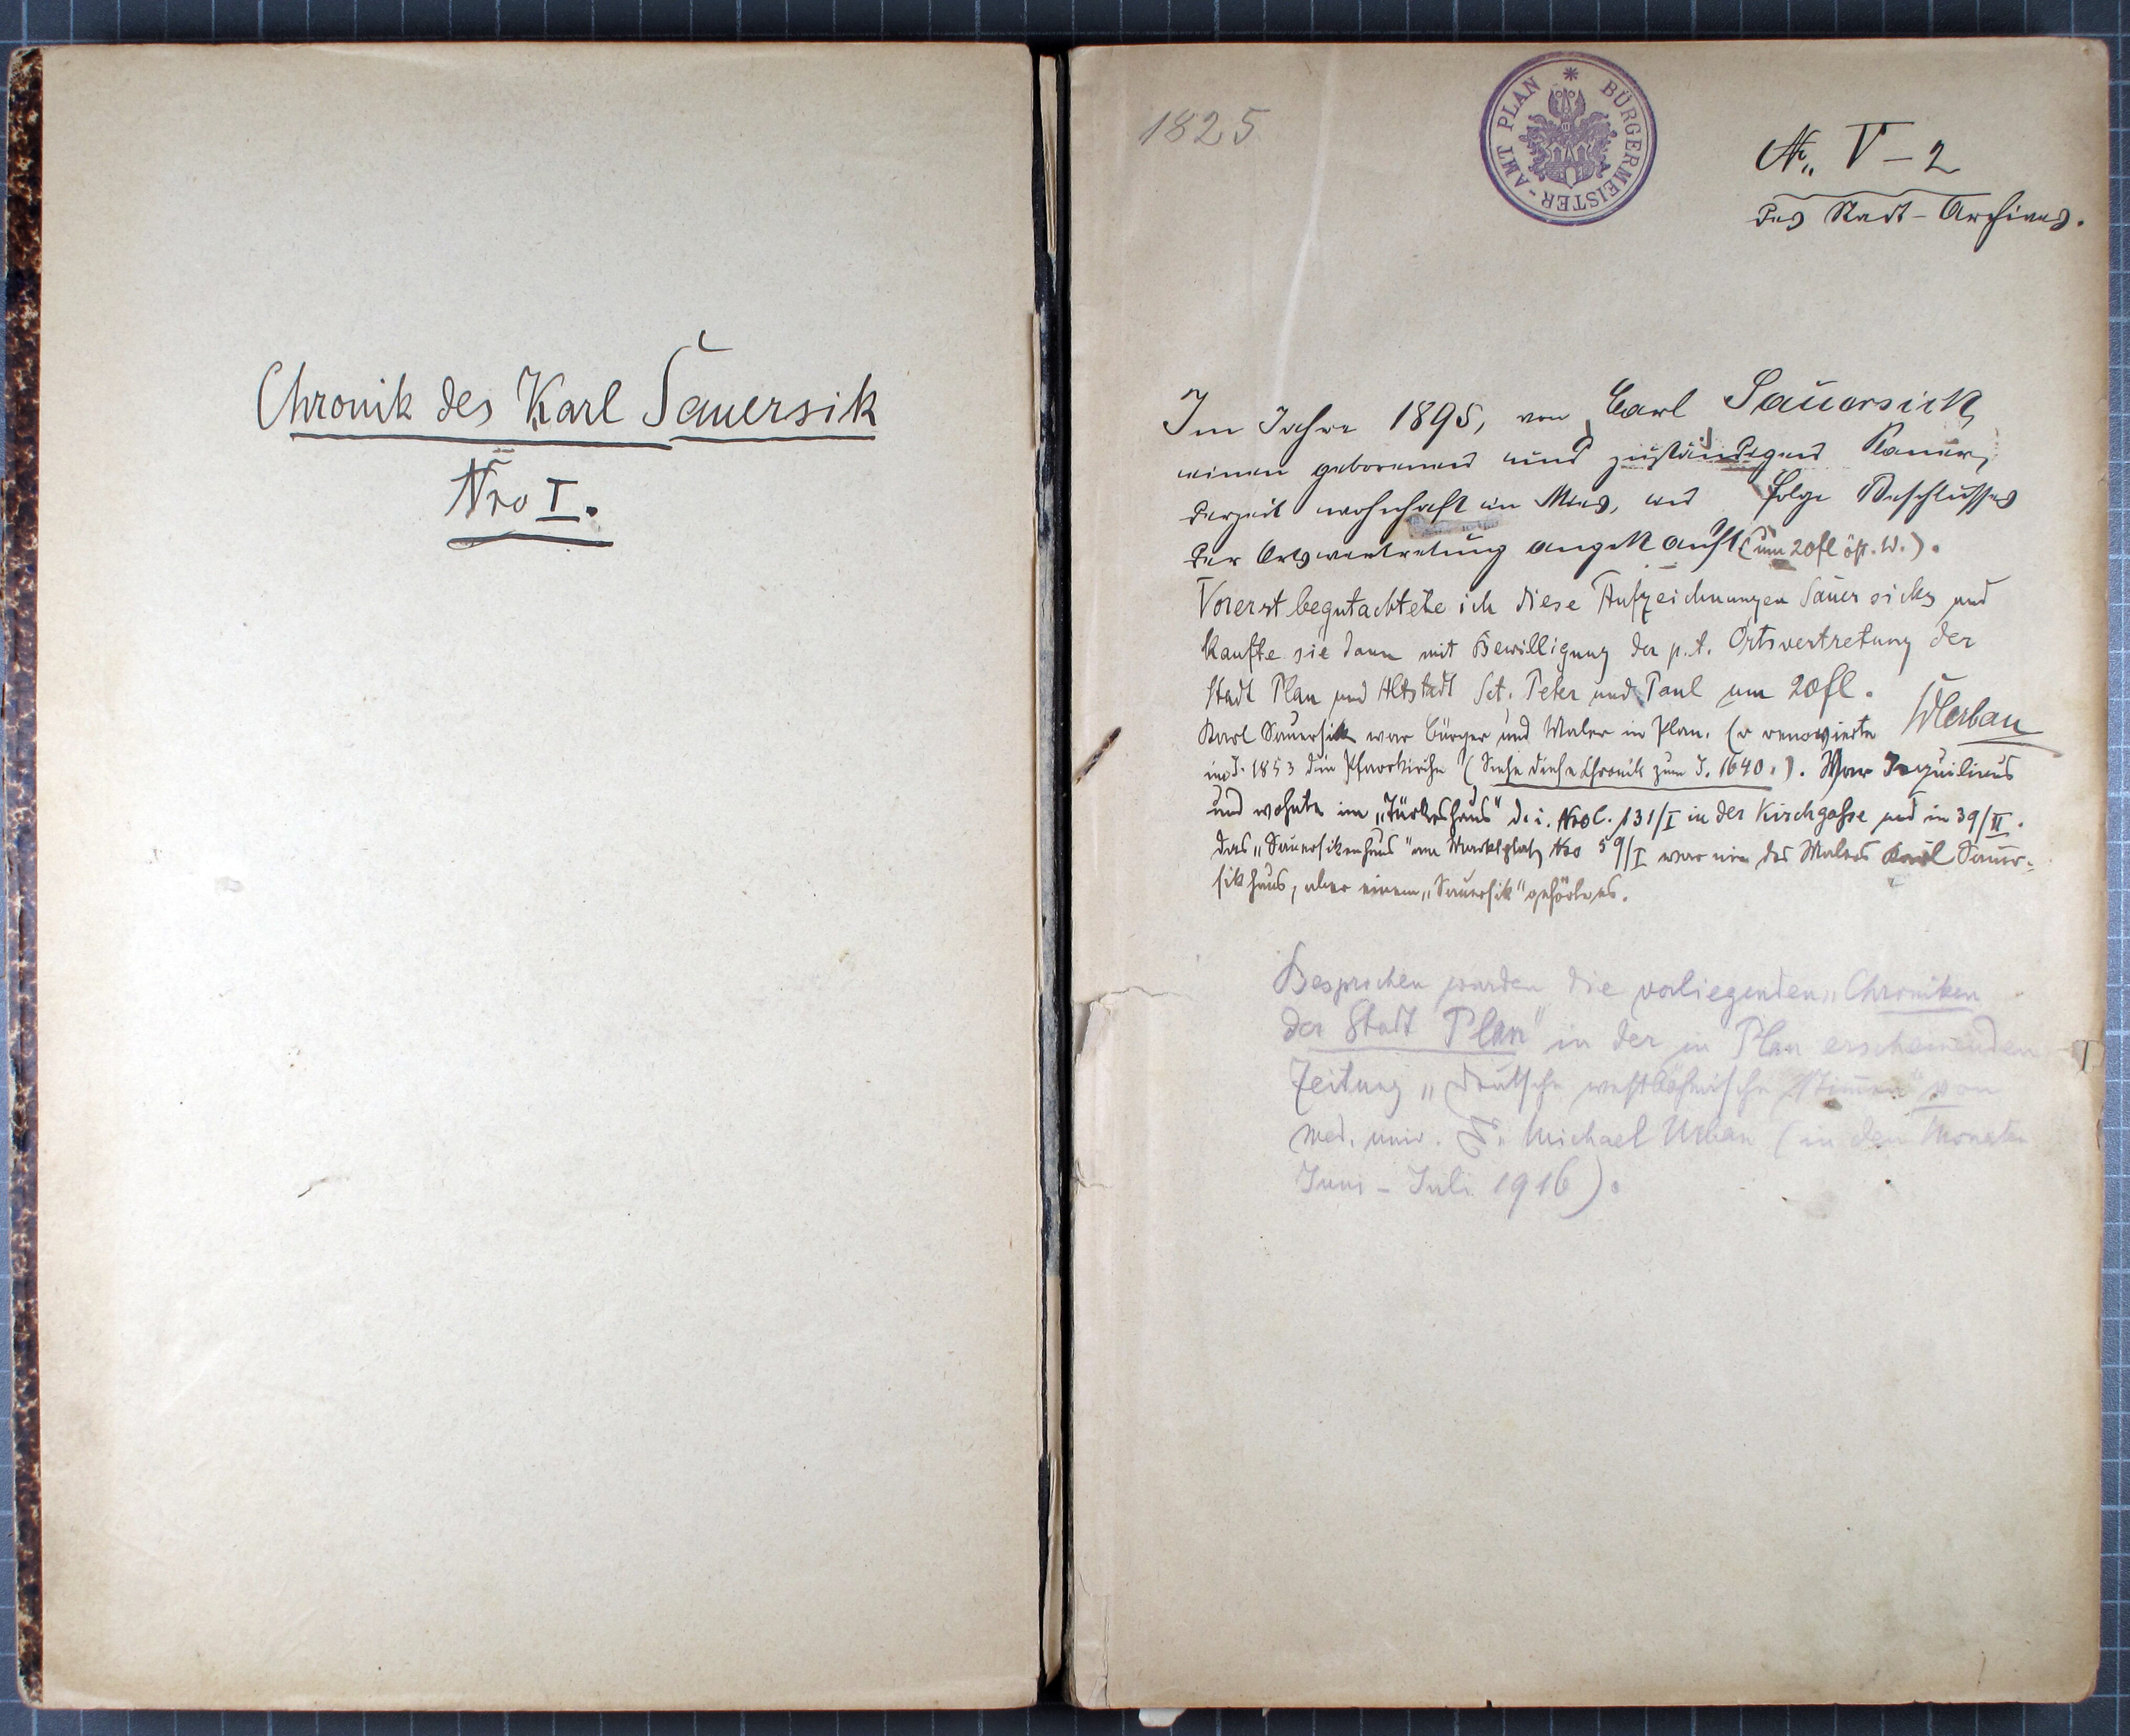 Chronik des Karl Sauersik
Nro I.
1825
BÜRGERMEISTER-AMT PLAN
No. V – 2
des Stadt-Archives.
Im Jahre 1895, von Carl Sauersick,
einem geborenen und zuständigen Planer,
derzeit wohnhaft in Mies, aus folge Beschlusses
der Ortsvertretung angekauft (um 20 fl öst. W.).
Vorerst begutachtete ich diese Aufzeichnungen Sauersicks und
kaufte sie dann mit Bewilligung der p. t. Ortsvertretung der
Stadt Plan und Altstadt Sct. Peter und Paul um 20 fl.
Karl Sauersik war Bürger und Maler in Plan. (er renovierte
im J. 1853 die Pfarrkirche (Siehe diese Chronik zum J. 1640.). War Inquilinus
und wohnte im d. i. NroC. 131/I in der Kirchgasse und in 39/II.
das „Sauersikenhaus" am Marktplatz Nro 59/I war nie des Malers Karl Sauer-
sik haus, aber einem „Sauersik" gehörte es.
Besprochen wurden die vorliegenden „Chroniken
der Stadt Plan" in der in Plan erscheinenden
Zeitung „Deutsche westböhmische Stimmen" von
med. univ. Dr. Michael Urban (in den Monaten
Juni – Juli 1916).